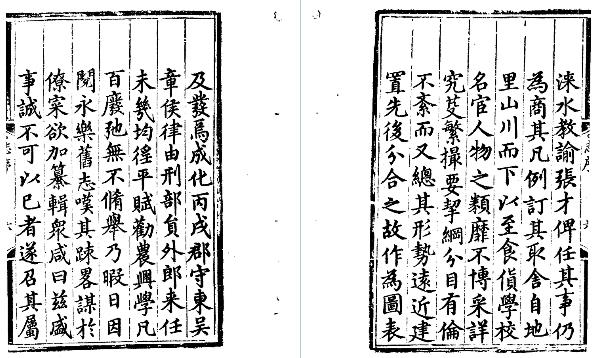 及發焉成化丙戌郡守東吳
章侯律由刑部員外郎来任
未幾均徭平賦勸農興學凡
百廢弛無不脩舉乃暇日因
閱永樂舊志嘆其踈畧謀於
僚寀欲加纂輯眾咸曰兹盛
事誠不可以已者遂召其屬
淶水教諭張才俾任其事仍
為商其凡例訂其取舍自地
里山川而下以至食貨學校
名官人物之類靡不博采詳
究芟繁撮要挈綱分目有倫
不紊而又總其形勢遠近建
置先後分合之故作為圖表